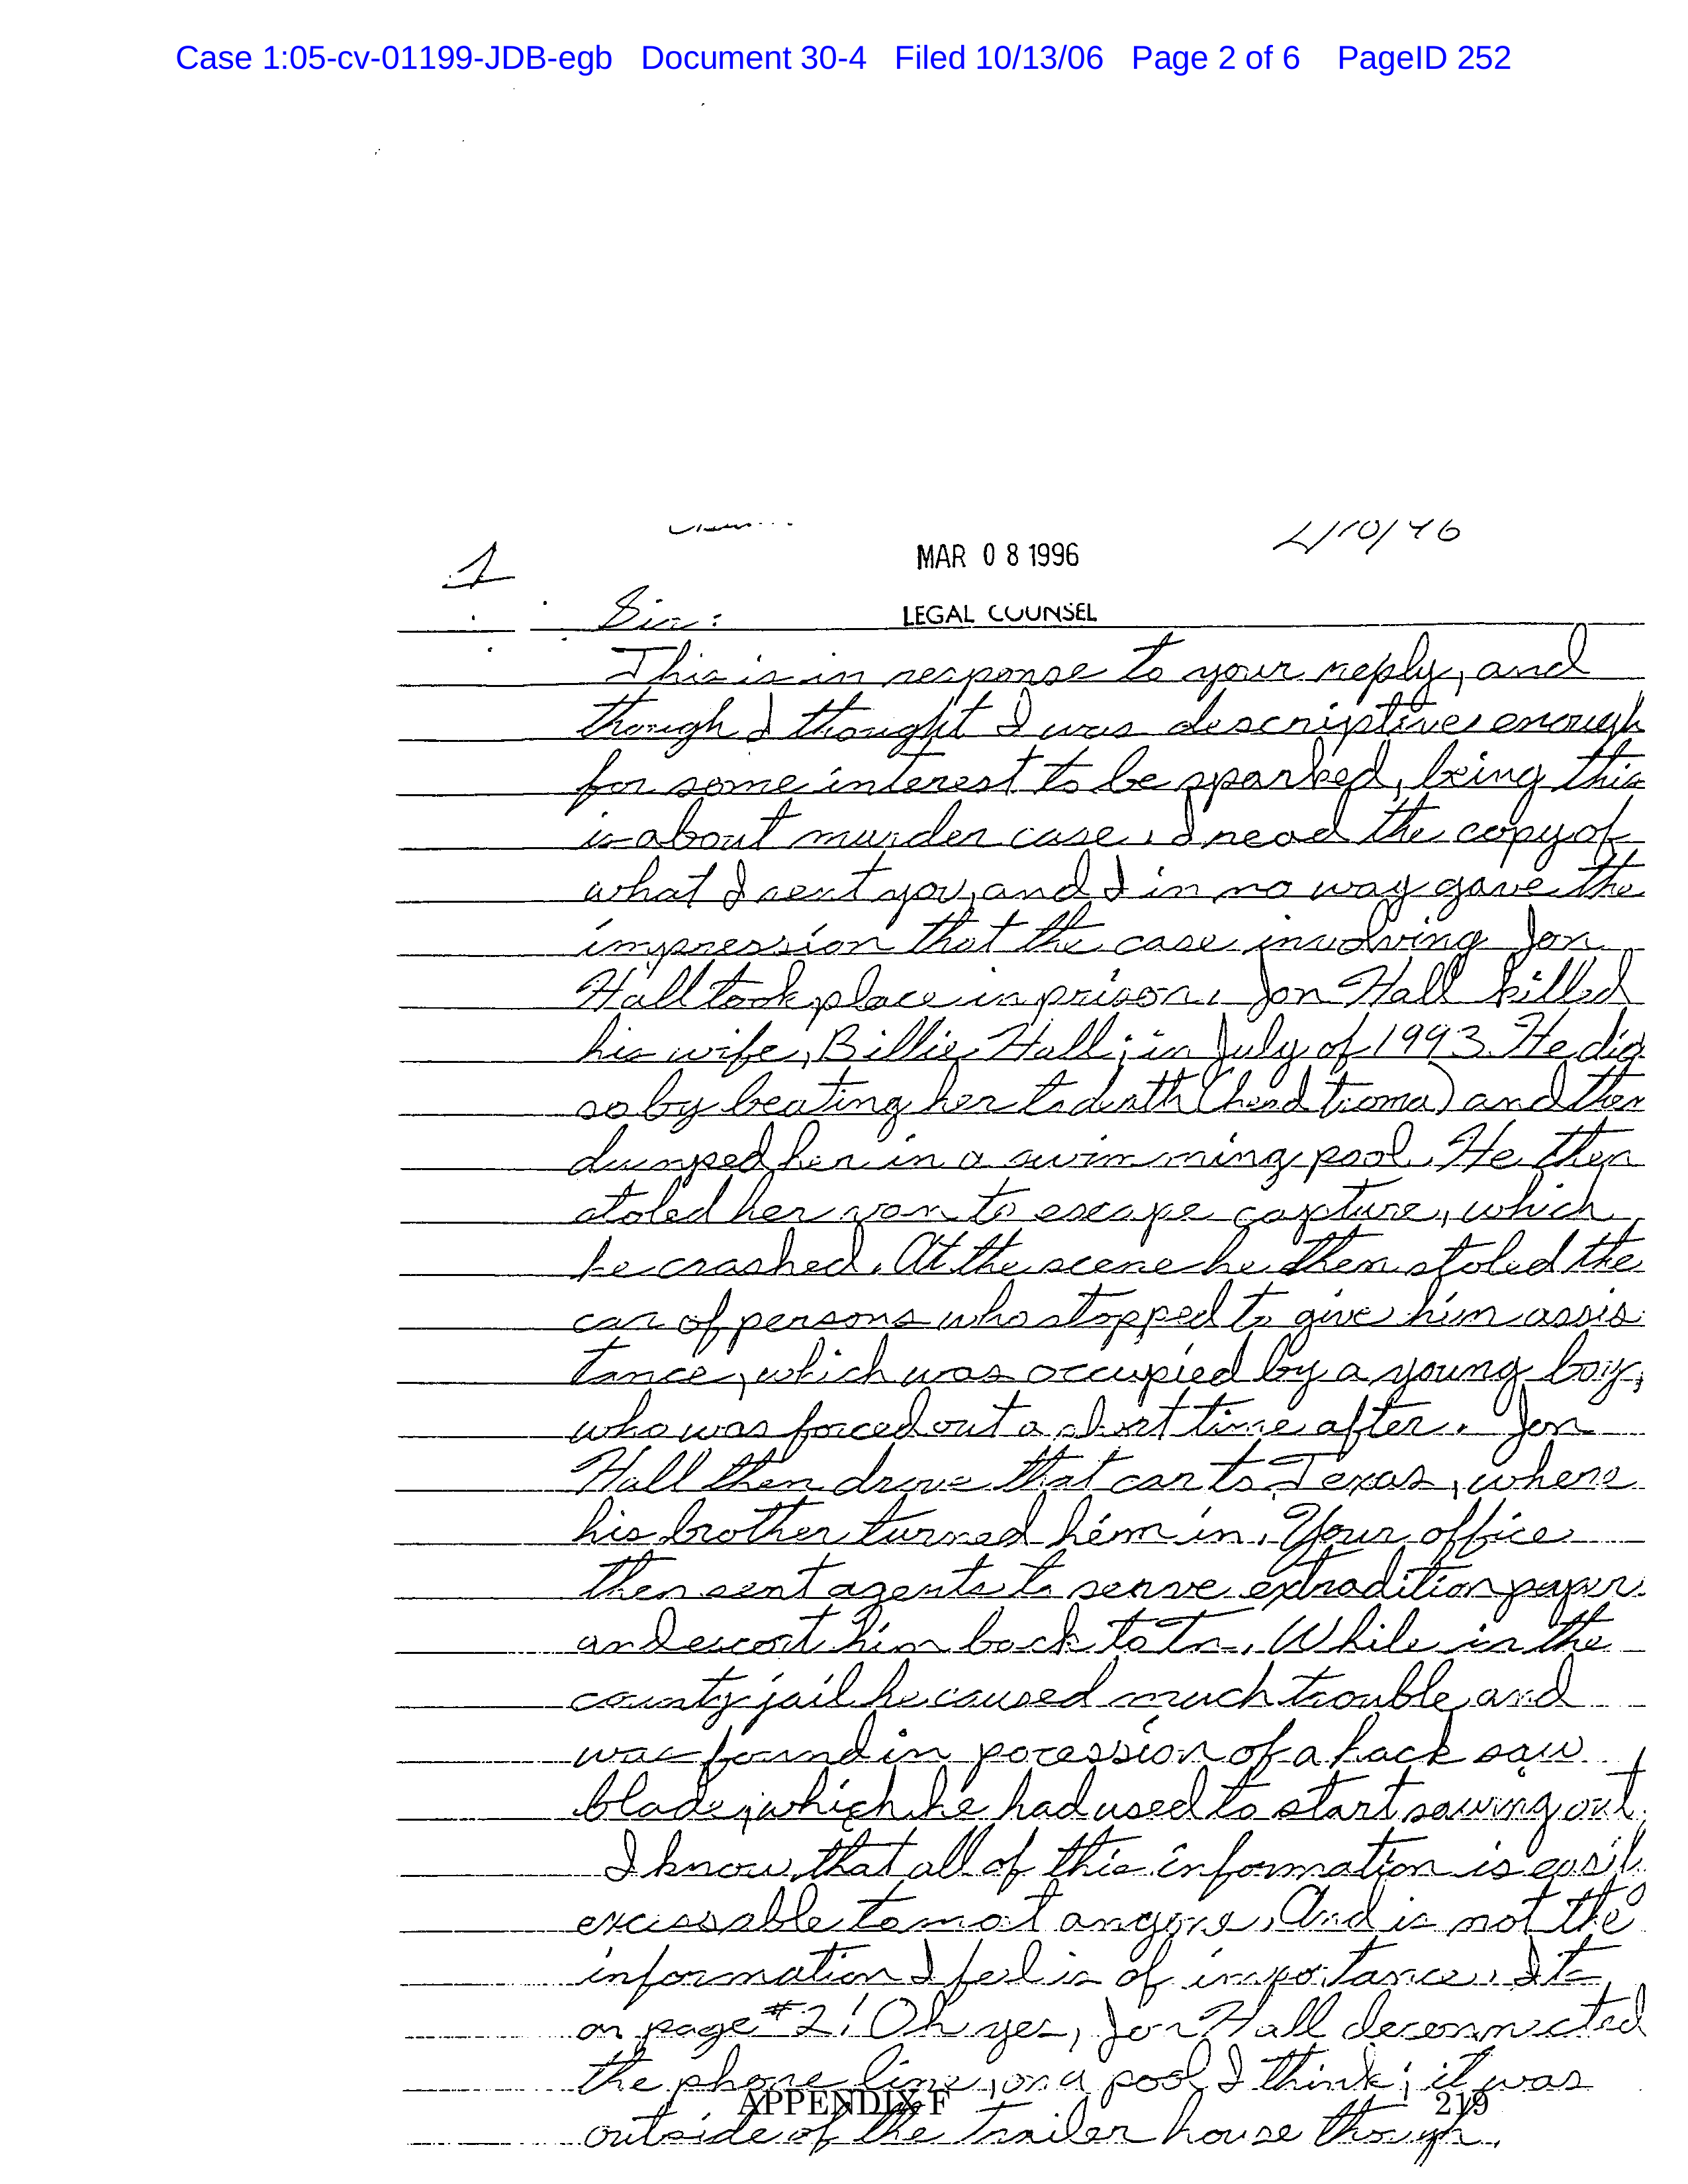 Case 1:05-cv-01199-JDB-egb Document 30-4 Filed 10/13/06 Page 2 of 6 PageID 252
MAR 08 1996
1
Sir: LEGAL COUNSEL
This is in response to your reply, and
though I thought I was descriptive enough
for some interest to be sparked, being this
is about murder case. I read the copy of
what I sent you, and I in no way gave the
impression that the case involving Jon
Hall took place in prison. Jon Hall killed
his wife, Billie Hall; in July of 1993. He did
so by beating her to death (head troma) and then
dumped her in a swimming pool. He then
stoled her van to escape capture, which
he crashed. At the scene he then stoled the
car of persons who stopped to give him assis
tance, which was occupied by a young boy,
who was forced out a short time after. Jon
Hall then drove that car to Texas, where
his brother turned him in. Your office
then sent agents to serve extradition paper
and escort him back to Tn. While in the
county jail he caused much trouble and
was found in pocession of a hack saw
blade, which he had used to start sawing out.
I know that all of this information is easil
excessable to most anyone. And is not the
information I feel is of importance. Its
on page #2! Oh yes, Jon Hall deconnected
the phone line, on a pool I think; it was
APPENDIX F 219
outside of the trailer house though.